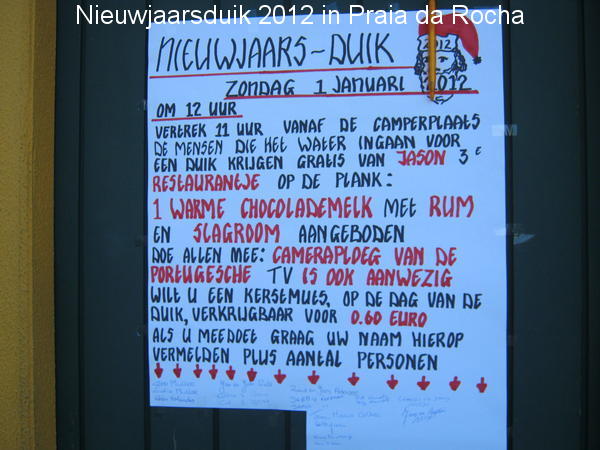 Nieuwjaarsduik 2012 in Praia da Rocha
NIEUWJAARS-DUIK
2012
ZONDAG 1 JANUARI 2012
OM 12 UUR
VERTREK 11 UUR VANAF DE CAMPERPLAATS
DE MENSEN DIE HET WATER INGAAN VOOR
EEN DUIK KRIJGEN GRATIS VAN JASON 3E
RESTAURANTJE OP DE PLANK:
1 WARME CHOCOLADEMELK MET RUM
EN SLAGROOM AANGEBODEN
DOE ALLEN MEE: CAMERAPLOEG VAN DE
PORTUGESCHE TV IS OOK AANWEZIG
WILT U EEN KERSTMUTS, OP DE DAG VAN DE
DUIK, VERKRIJGBAAR VOOR 0.60 EURO
ALS U MEEDOET GRAAG UW NAAM HIEROP
VERMELDEN PLUS AANTAL PERSONEN